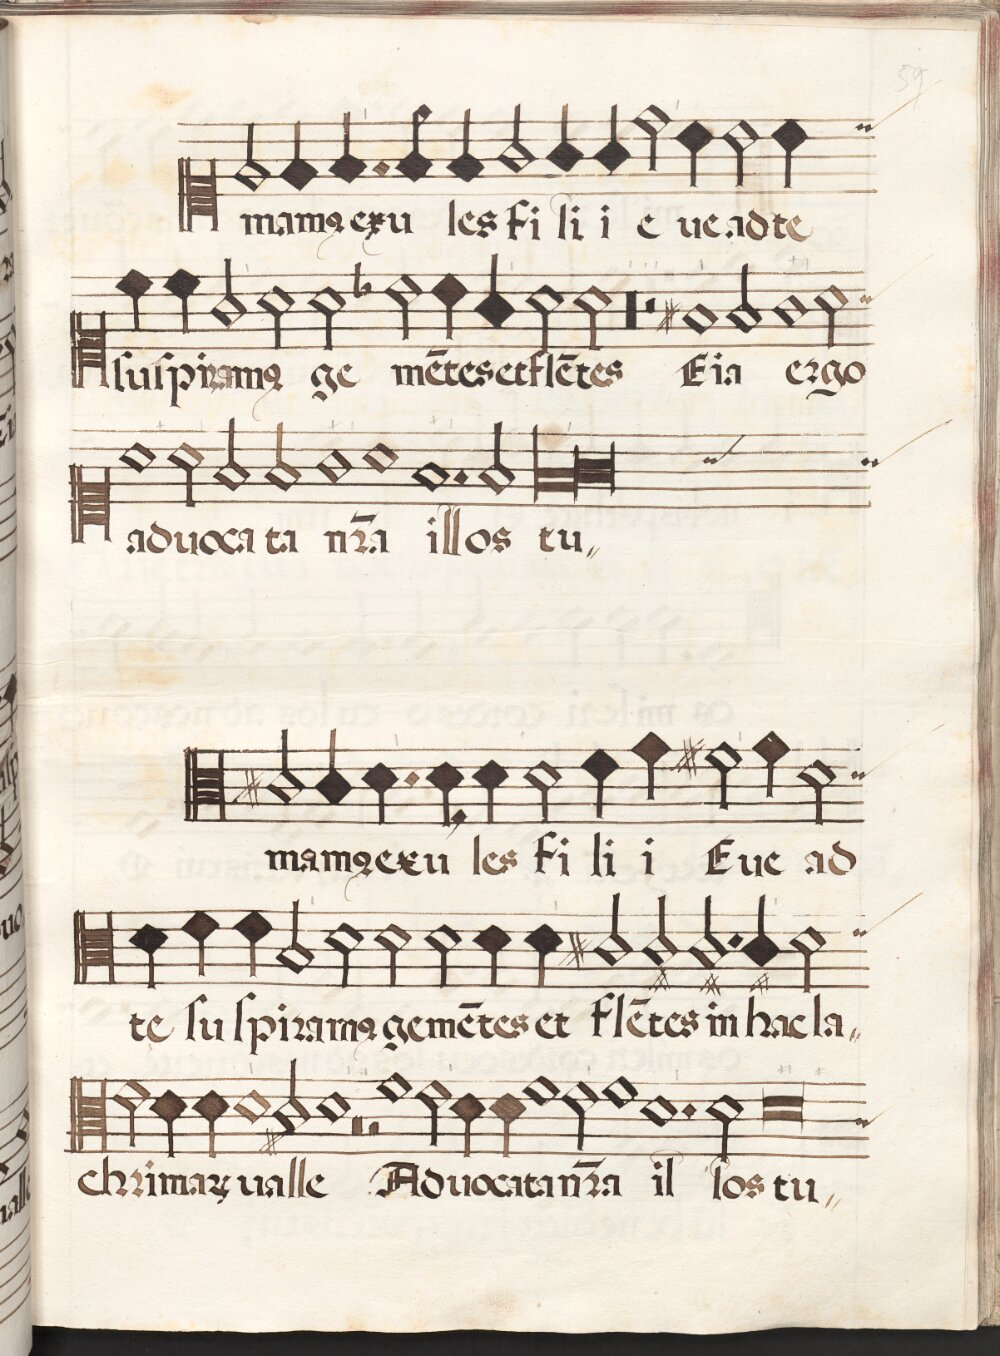 59
mamꝰ exu les fi li i e ue ad te
suspiramꝰ ge mētes et flētes Eia ergo
aduoca ta nr̄a illos tu,,
mamꝰ exu les fi li i Eue ad
te su spiramꝰ gemētes et flētes in hac la,,
chrimaꝝ ualle Aduocata nr̄a il los tu,,